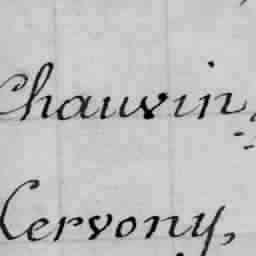 Chauvin,
Cervony,